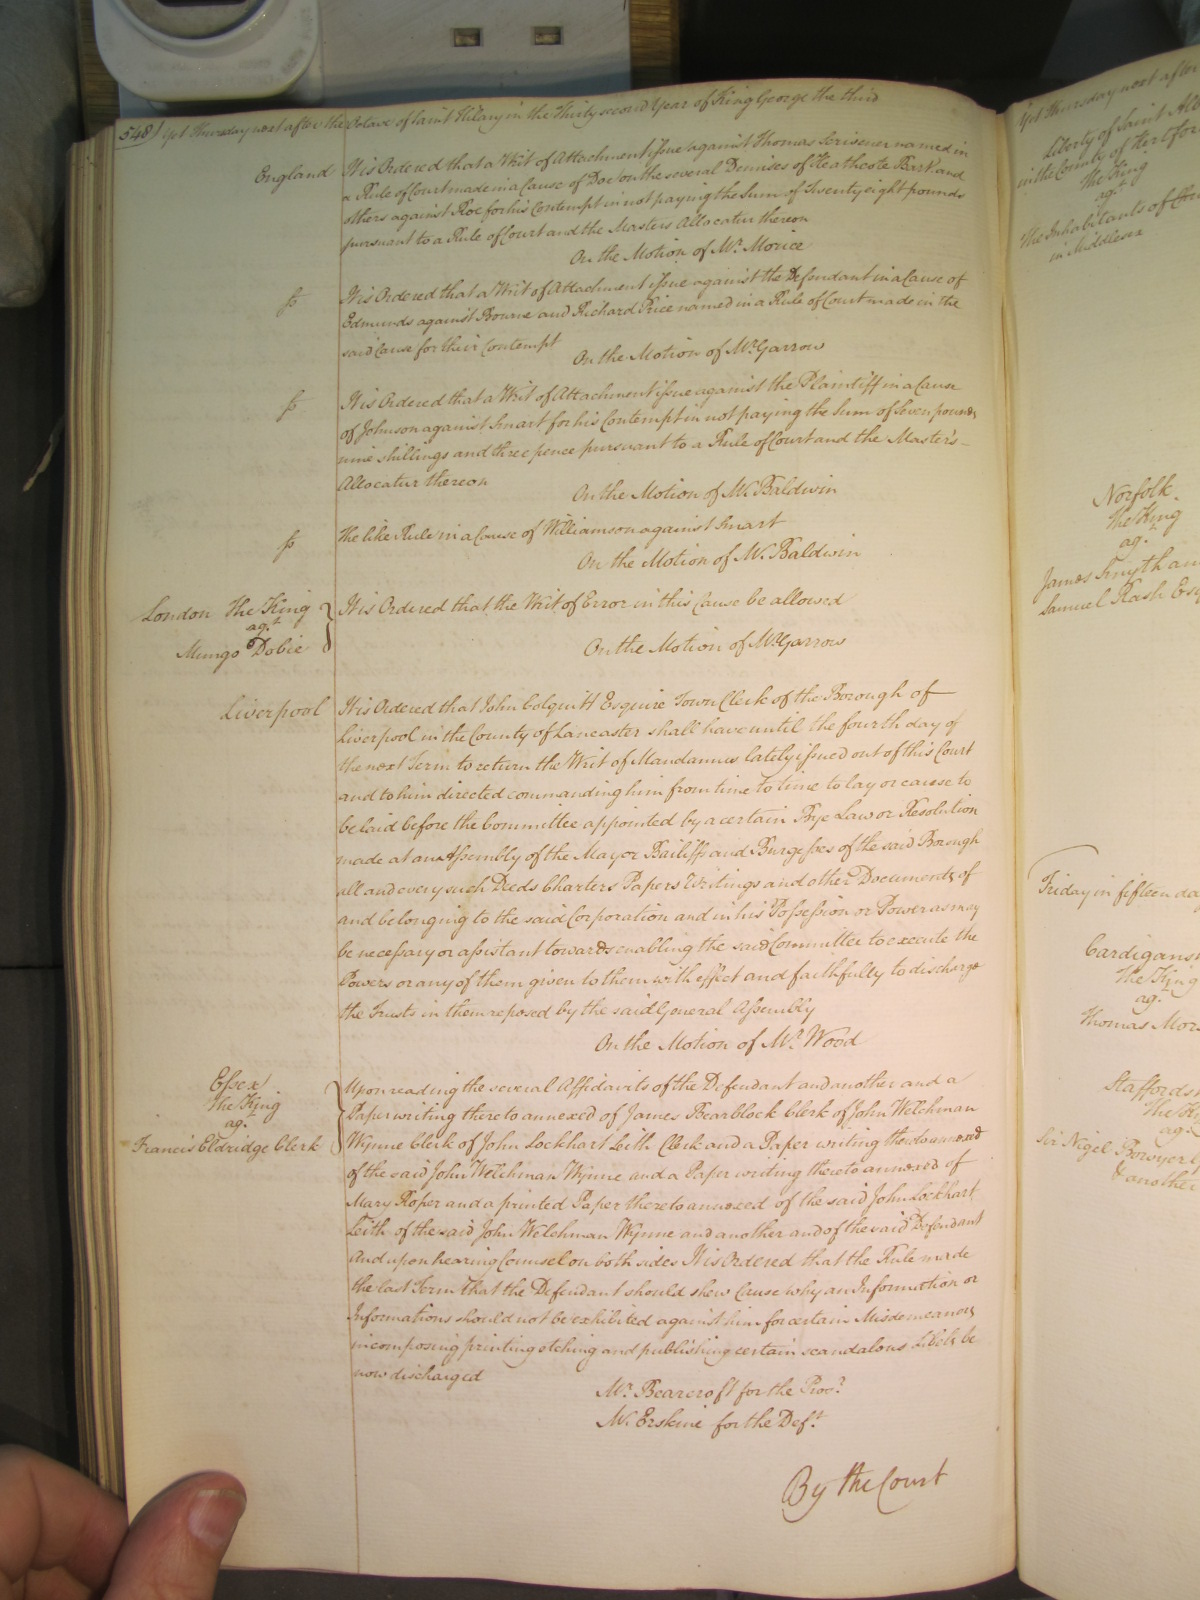 548 Yet Thursday next after the Octave of Saint Hilary in the Thirty second Year of King George the third
England It is Ordered that a Writ of Attachment issue against Thomas Scrivener named in
a Rule of Court made in a Cause of Doe on the several Demises of Heathcote Bart. and
others against Roe for his Contempt in not paying the Sum of Twenty eight pounds
pursuant to a Rule of Court and the Masters Allocatur thereon
On the Motion of Mr. Morice
It is Ordered that a Writ of Attachment issue against the Defendant in a Cause of
Edmunds against Bourne and Richard Price named in a Rule of Court made in the
said Cause for their Contempt
On the Motion of Mr. Garrow
It is Ordered that a Writ of Attachment issue against the Plaintiff in a Cause
of Johnson against Smart for his Contempt in not paying the Sum of Seven pounds
nine shillings and three pence pursuant to a Rule of Court and the Master's
Allocatur thereon
On the Motion of Mr. Baldwin
The like Rule in a Cause of Williamson against Smart
On the Motion of Mr. Baldwin
London The King
agt.
Mungo Dobie
It is Ordered that the Writ of Error in this Cause be allowed
On the Motion of Mr. Garrow
Liverpool It is Ordered that John Colquitt Esquire Town Clerk of the Borough of
Liverpool in the County of Lancaster shall have until the fourth day of
the next Term to return the Writ of Mandamus lately issued out of this Court
and to him directed commanding him from time to time to lay or cause to
be laid before the Committee appointed by a certain Bye Law or Resolution
made at an Assembly of the Mayor Bailiffs and Burgesses of the said Borough
all and every such Deeds Charters Papers Writings and other Documents of
and belonging to the said Corporation and in his Possession or Power as may
be necessary or assistant towards enabling the said Committee to execute the
Powers or any of them given to them with effect and faithfully to discharge
the Trusts in them reposed by the said General Assembly
On the Motion of Mr. Wood
Essex
The King
ag.
Francis Eldridge Clerk
Upon reading the several Affidavits of the Defendant and another and a
Paper writing thereto annexed of James Bearblock Clerk of John Welchman
Wynne Clerk of John Lockhart Leith Clerk and a Paper writing thereto annexed
of the said John Welchman Wynne and a Paper writing thereto annexed of
Mary Roper and a printed Paper thereto annexed of the said John Lockhart
Leith of the said John Welchman Wynne and another and of the said Defendant
And upon hearing Counsel on both sides It is Ordered that the Rule made
the last Term That the Defendant should shew Cause why an Information or
Informations should not be exhibited against him for certain Misdemeanors
in composing printing etching and publishing certain scandalous Libels be
now discharged
Mr. Bearcroft for the Pros.
Mr. Erskine for the Deft.
By the Court
Yet Thursday next after
Liberty of Saint
in the County of Hertfor
The King
agt.
The Inhabitants of
in Middlesex
Norfolk
The King
agt.
James Smyth an
Samuel Kash Esq
Friday in fifteen da
Cardigans
The King
ag.
Thomas Mor
Staffords
The K
ag.
Sir Nigel Bowyer
& another